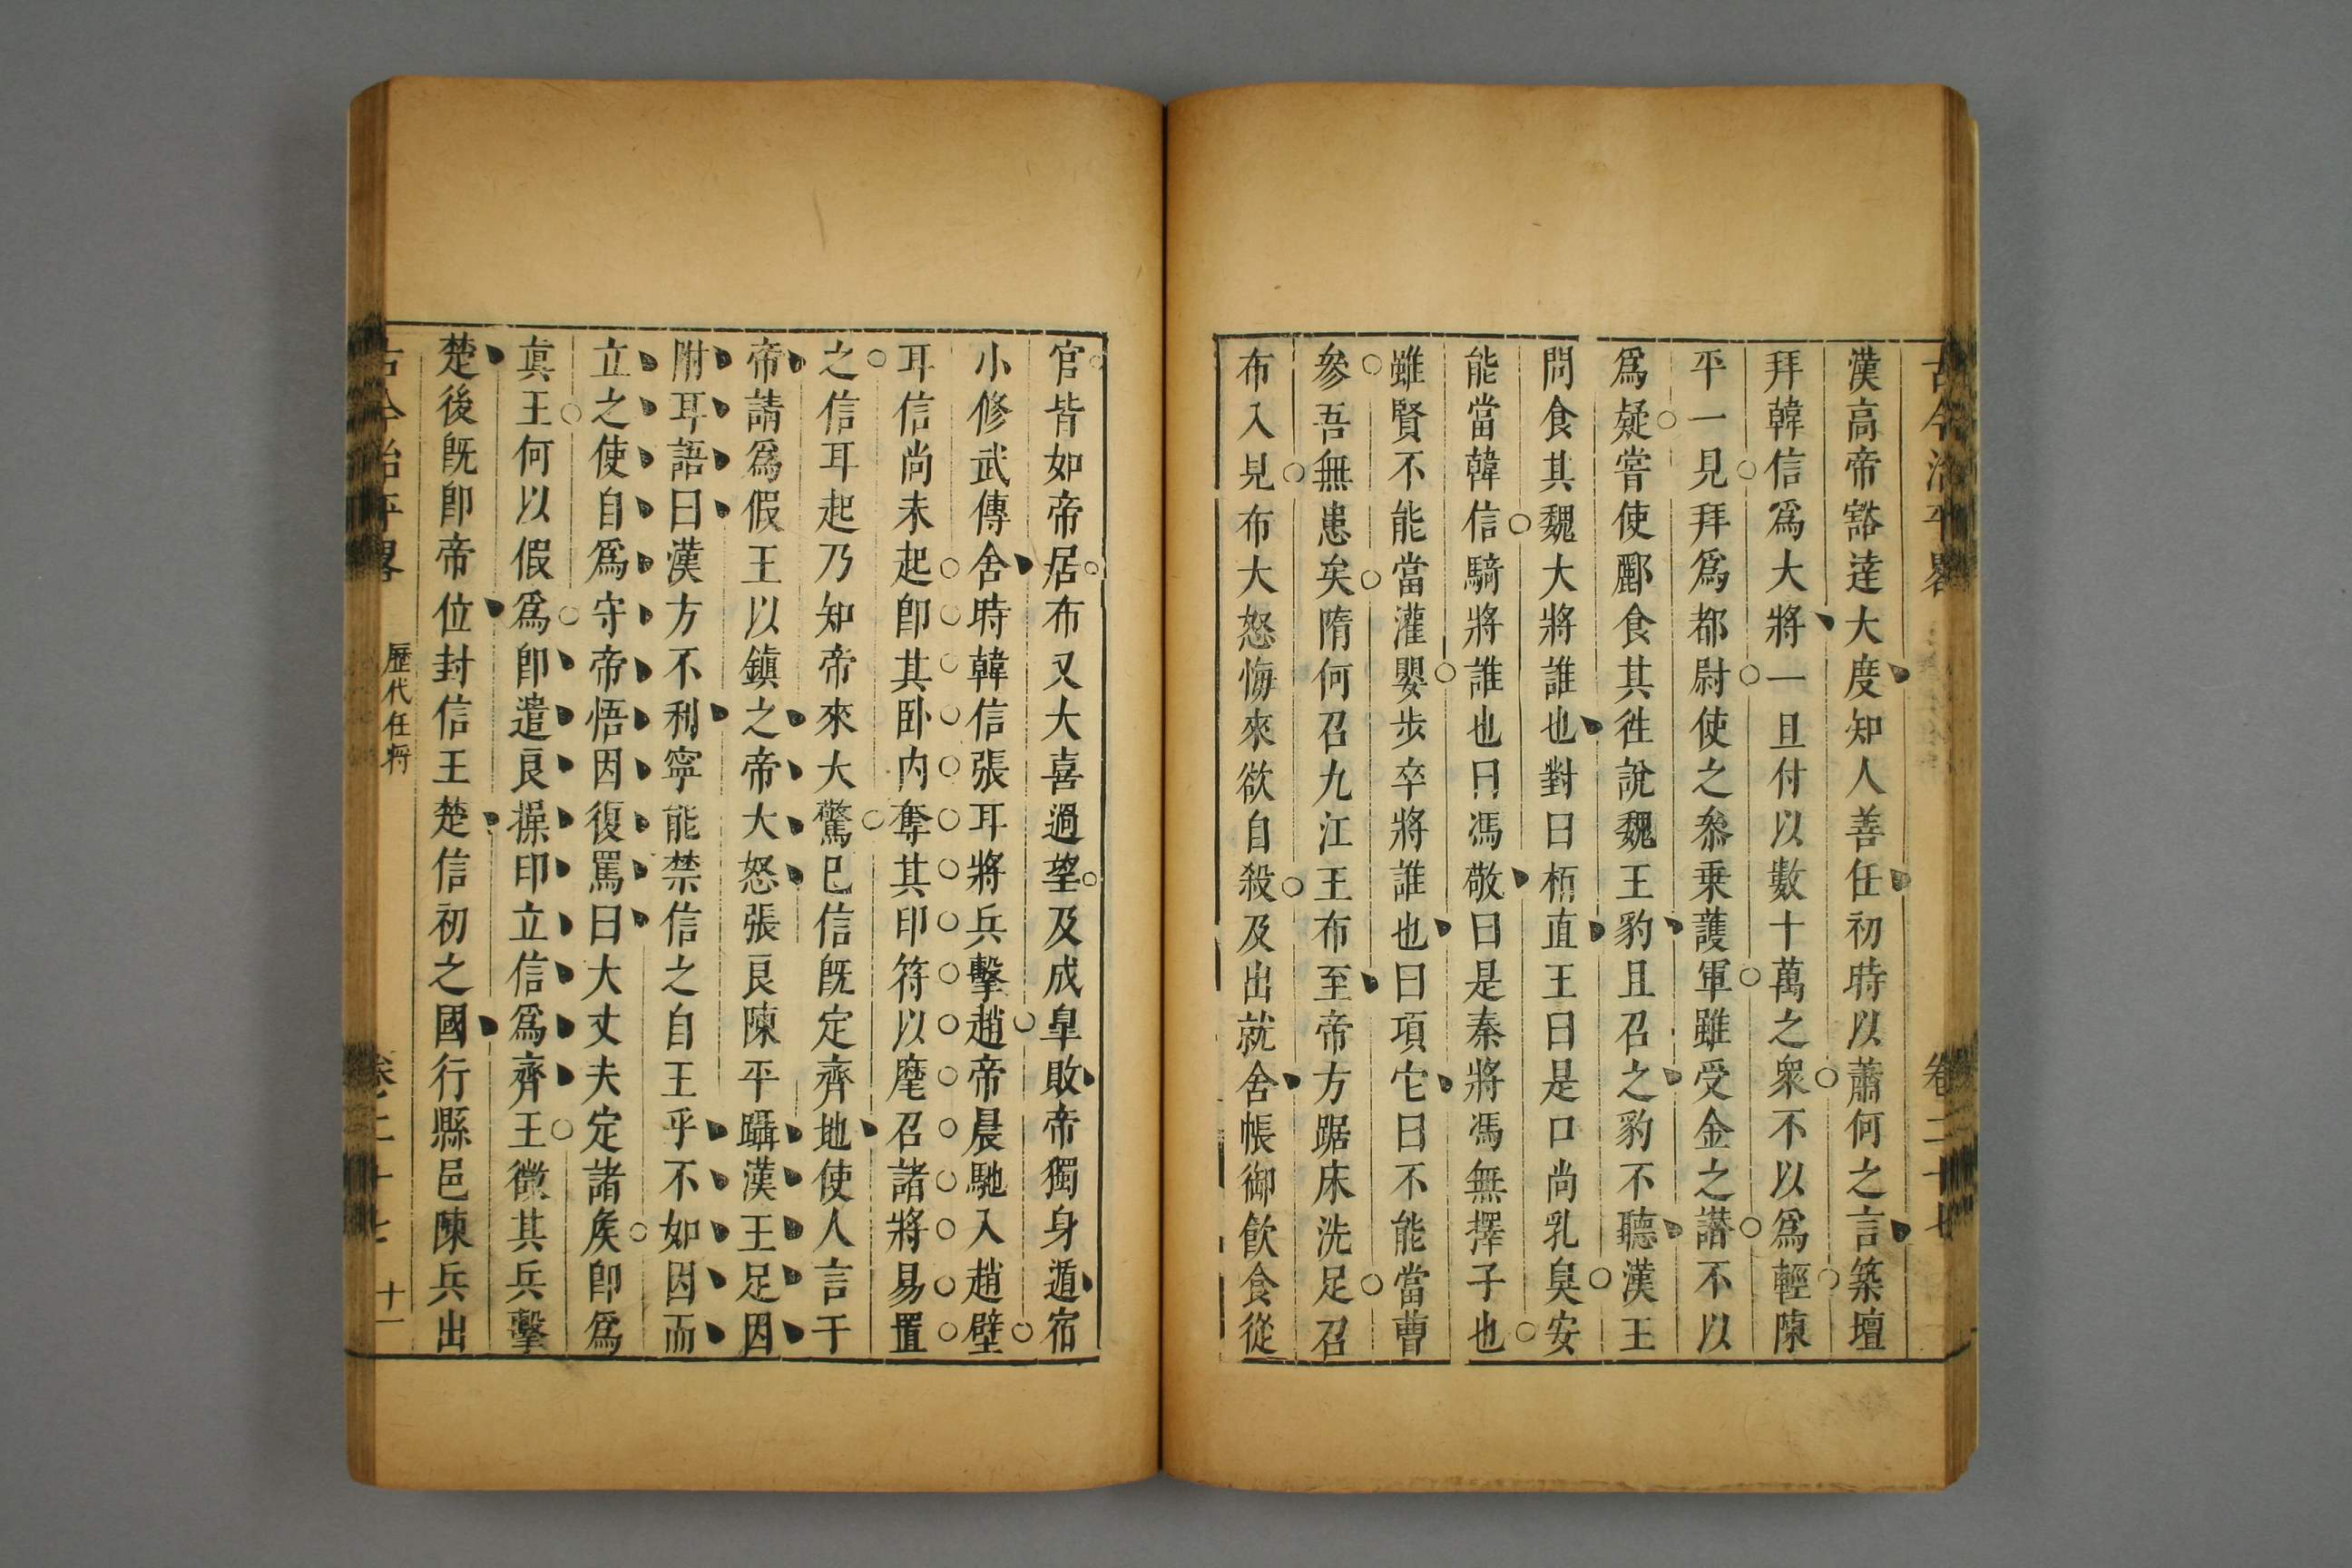 古今治平畧 卷二十七
漢高帝豁達大度知人善任初時以蕭何之言築壇
拜韓信爲大將一旦付以數十萬之衆不以爲輕陳
平一見拜爲都尉使之叅乗護軍雖受金之譖不以
爲疑嘗使酈食其徃說魏王豹且召之豹不聽漢王
問食其魏大將誰也對曰栢直王曰是口尚乳臭安
能當韓信騎將誰也曰馮敬曰是秦將馮無擇子也
雖賢不能當灌嬰步卒將誰也曰項它曰不能當曹
參吾無患矣隋何召九江王布至帝方踞床洗足召
布入見布大怒悔來欲自殺及出就舍帳御飲食從
官皆如帝居布又大喜過望及成臯敗帝獨身遁宿
小修武傳舍時韓信張耳將兵擊趙帝晨馳入趙壁
耳信尚未起卽其卧内奪其印符以麾召諸將易置
之信耳起乃知帝來大驚已信旣定齊地使人言于
帝請爲假王以鎭之帝大怒張良陳平躡漢王足因
附耳語曰漢方不利寧能禁信之自王乎不如因而
立之使自爲守帝悟因復罵曰大丈夫定諸矦卽爲
眞王何以假爲卽遣良操印立信爲齊王徵其兵擊
楚後旣卽帝位封信王楚信初之國行縣邑陳兵出
古今治平畧 歷代任將 卷二十七 十一